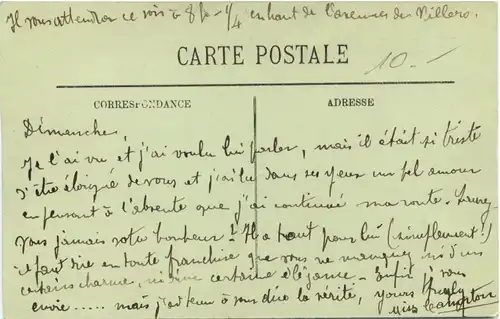 Il vous attendra ce soir à 8 h - 1/4 en haut de l'avenue de Villars.
CARTE POSTALE
10.-
CORRESPONDANCE
ADRESSE
Dimanche,
Je l'ai vu et j'ai voulu lui parler, mais il était si triste
d'être éloigné de vous et j'ai lu dans ses yeux un bel amour
en pensant à l'absente que j'ai continué ma route.
vous jamais votre bonheur? Il a tout pour lui (simplement!)
il faut dire en toute franchise que vous ne manquez ni d'un
certain charme, ni d'une certaine élégance - Enfin, à vous
..... mais j'ai tenu à vous dire la vérité, yours truly
Miss